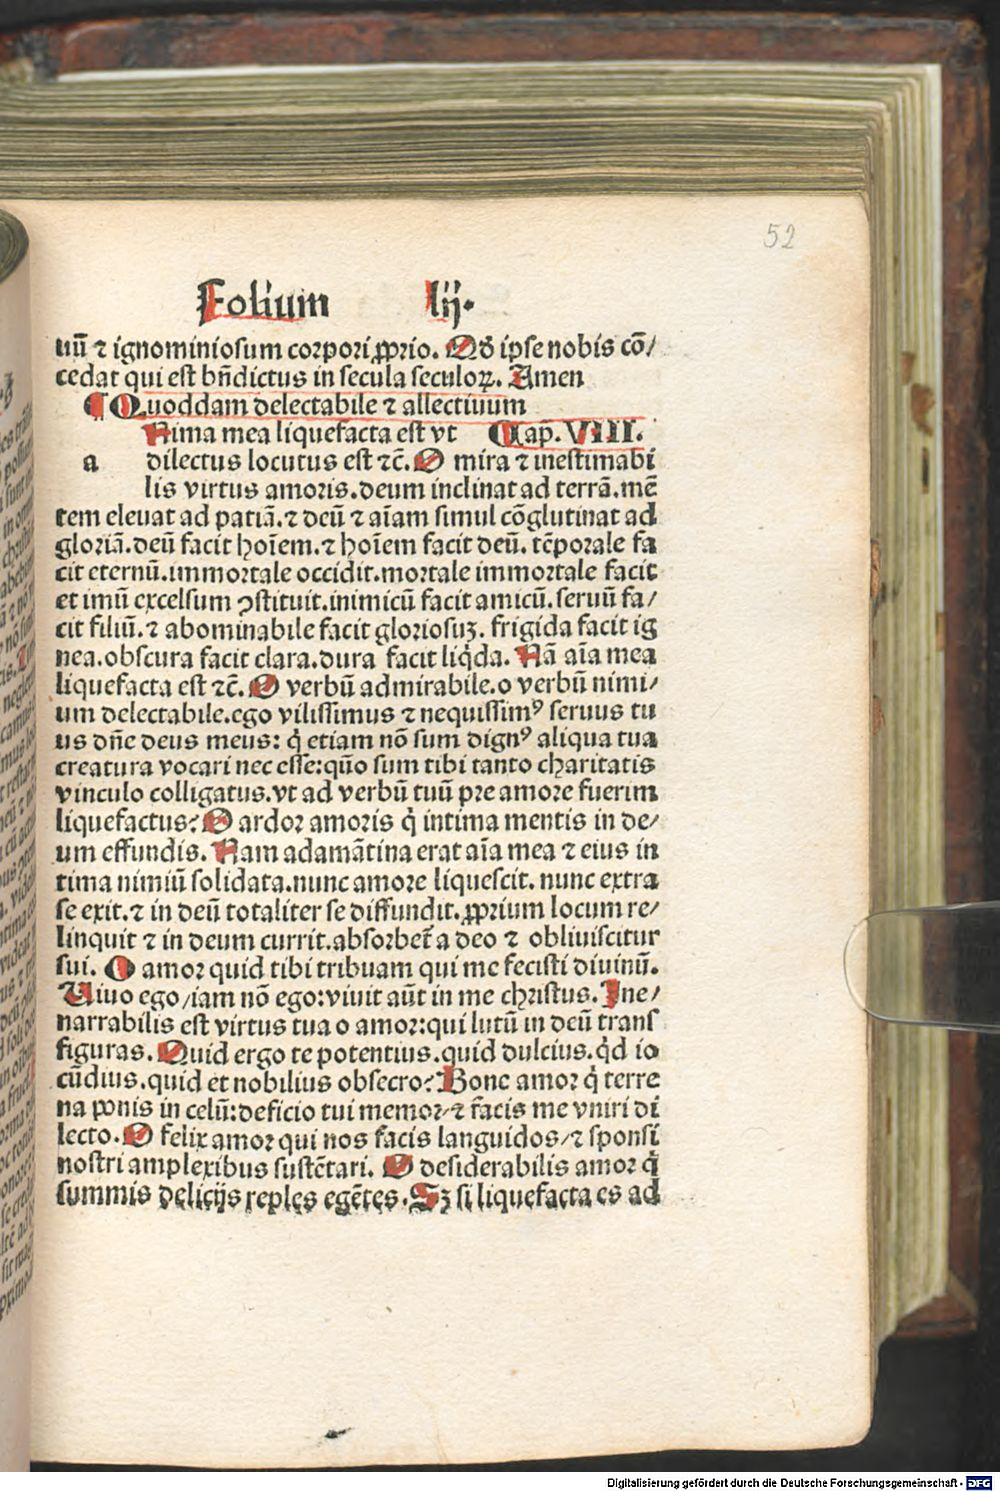 52
Folium lij.
uū ⁊ ignominiosum corpori ꝓprio. Qď ipse nobis cō/
cedat qui est bn̄dictus in secula seculoꝝ. Amen
¶ Quoddam delectabile ⁊ allectiuum
Nima mea liquefacta est vt ¶ Cap̄. VIII.
a dilectus locutus est ⁊c̄. O mira ⁊ inestimabi
lis virtus amoris. deum inclinat ad terrā. mē
tem eleuat ad patiā. ⁊ deū ⁊ aīam simul cōglutinat ad
gloriā. deū facit hoīem. ⁊ hoīem facit deū. tēporale fa
cit eternū. immortale occidit. mortale immortale facit
et imū excelsum ꝯstituit. inimicū facit amicū. seruū fa/
cit filiū. ⁊ abominabile facit gloriosuꝫ. frigida facit ig
nea. obscura facit clara. dura facit liq̇da. Nā aīa mea
liquefacta est ⁊c̄. O verbū admirabile. o verbū nimi/
um delectabile. ego vilissimus ⁊ nequissimꝰ seruus tu
us dn̄e deus meus: q̇ etiam nō sum dignꝰ aliqua tua
creatura vocari nec esse: quō sum tibi tanto charitatis
vinculo colligatus. vt ad verbū tuū pre amore fuerim
liquefactus? O ardor amoris q̇ intima mentis in de/
um effundis. Nam adamātina erat aīa mea ⁊ eius in
tima nimiū solidata. nunc amore liquescit. nunc extra
se exit. ⁊ in deū totaliter se diffundit. ꝓprium locum re/
linquit ⁊ in deum currit. absorbet̄ a deo ⁊ obliuiscitur
sui. O amor quid tibi tribuam qui me fecisti diuinū.
Uiuo ego/iam nō ego: viuit aūt in me christus. Ine/
narrabilis est virtus tua o amor: qui lutū in deū trans
figuras. Quid ergo te potentius. quid dulcius. q̇d io
cūdius. quid et nobilius obsecro? Bone amor q̇ terre
na ponis in celū: deficio tui memor/⁊ facis me vniri di
lecto. O felix amor qui nos facis languidos/⁊ sponsi
nostri amplexibus sustētari. O desiderabilis amor q̇
summis delicijs reples egētes. Sꝫ si liquefacta es ad
Digitalisierung gefördert durch die Deutsche Forschungsgemeinschaft - DFG